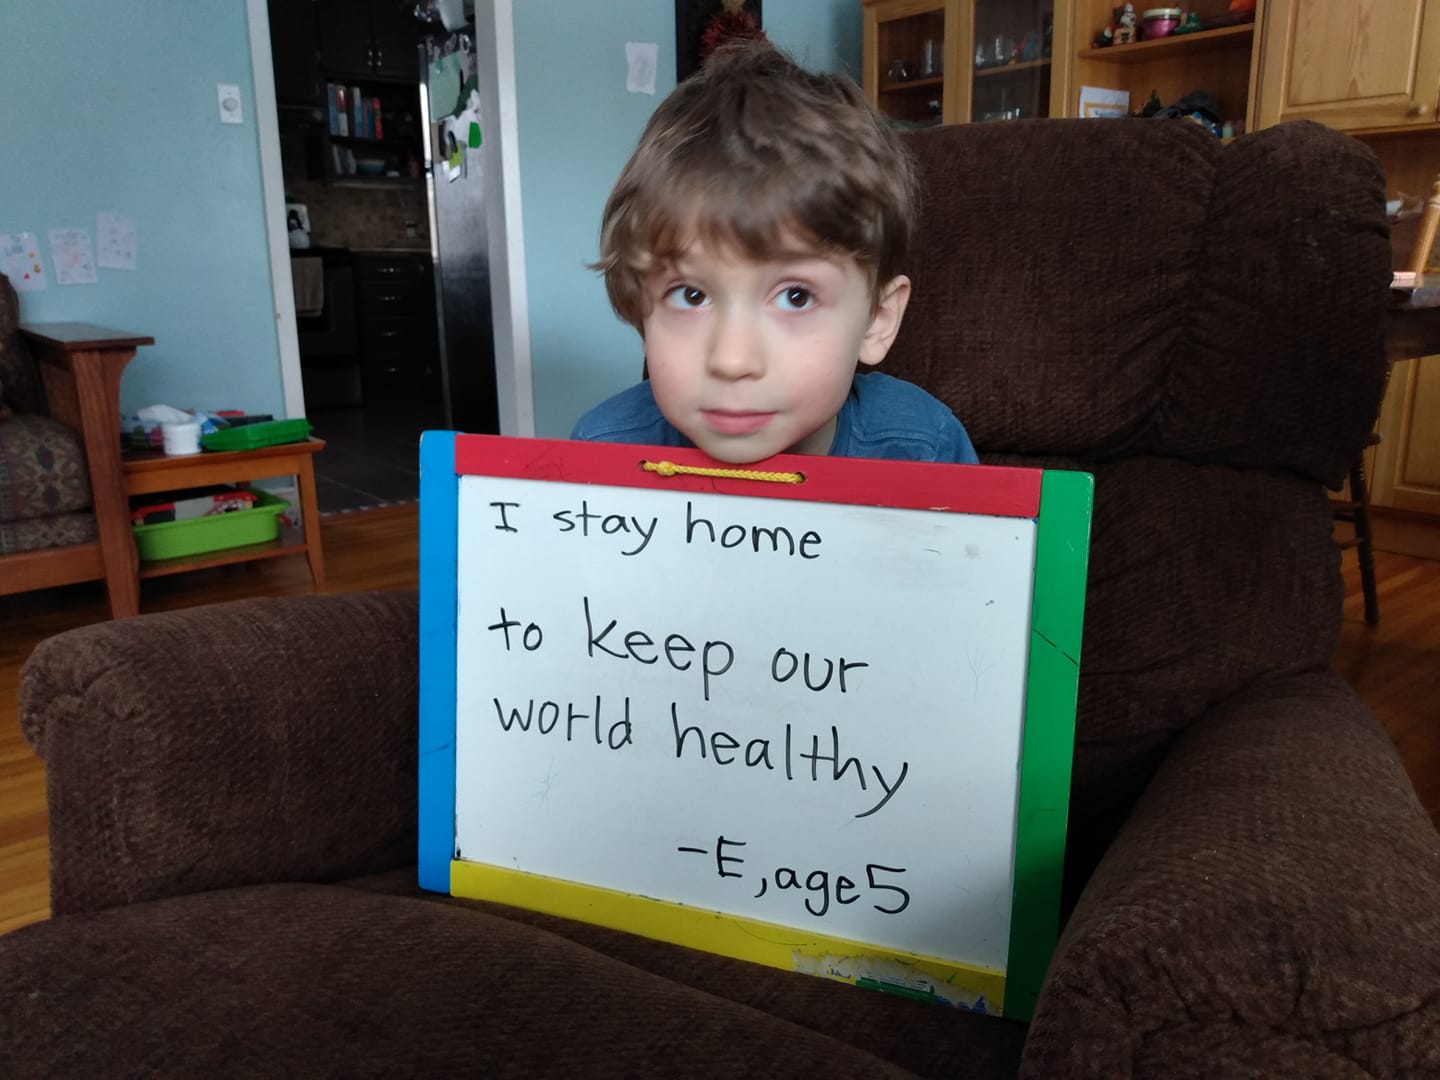 I stay home
to keep our
world healthy
-E, age 5